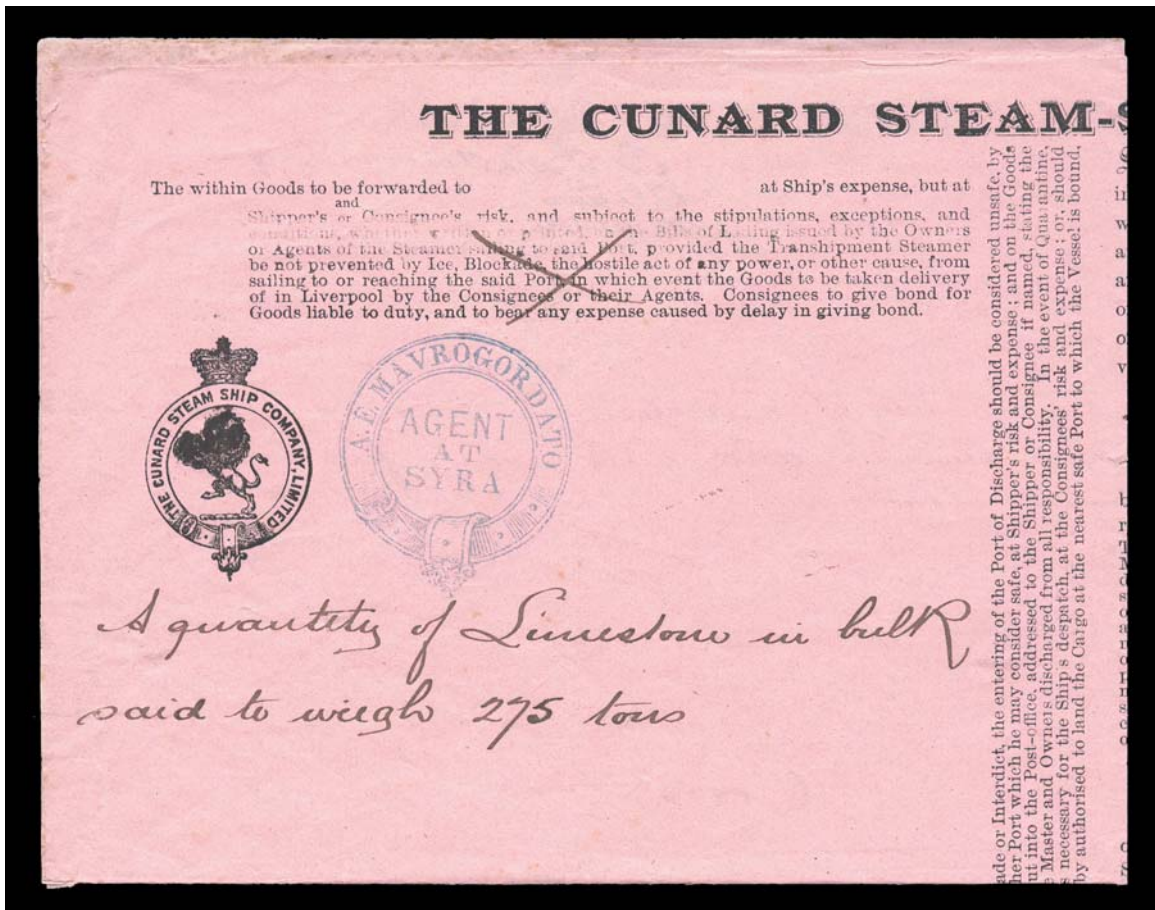 THE CUNARD STEAM-S
The within Goods to be forwarded to at Ship's expense, but at
and
Shipper's or Consignee's risk, and subject to the stipulations, exceptions, and
conditions, whether written or printed, on the Bills of Lading issued by the Owners
or Agents of the Steamer sailing to said Port, provided the Transhipment Steamer
be not prevented by Ice, Blockade, the hostile act of any power, or other cause, from
sailing to or reaching the said Port, in which event the Goods to be taken delivery
of in Liverpool by the Consignees or their Agents. Consignees to give bond for
Goods liable to duty, and to bear any expense caused by delay in giving bond.
THE CUNARD STEAM SHIP COMPANY, LIMITED
A.E. MAVROGORDATO
AGENT
AT
SYRA
A quantity of Limestone in bulk
said to weigh 275 tons
ade or Interdict, the entering of the Port of Discharge should be considered unsafe, by
her Port which he may consider safe, at Shipper's risk and expense; and on the Goods
ut into the Post-office, addressed to the Shipper or Consignee if named, stating the
e Master and Owners discharged from all responsibility. In the event of Quarantine,
s necessary for the Ship's despatch, at the Consignees' risk and expense; or, should
by authorised to land the Cargo at the nearest safe Port to which the Vessel is bound,